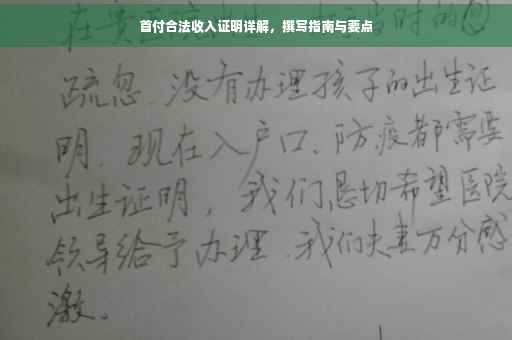 首付合法收入证明详解，撰写指南与要点
在贵
当时的
疏忽、没有办理孩子的出生证
明、现在入户口、防疫都需要
出生证明，我们恳切希望医院
领导给予办理、我们夫妻万分感
激。